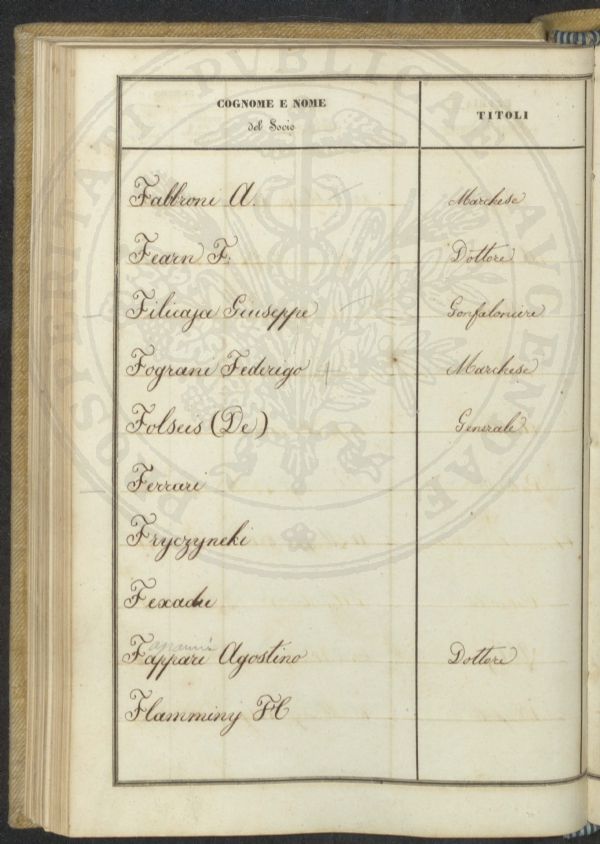 COGNOME E NOME
del Socio
TITOLI
Fabbroni A. Marchese
Fearn F. Dottore
Filicaja Giuseppe Gonfaloniere
Fograni Federigo Marchese
Folseis (De) Generale
Ferrari
Fryczyneki
Fappari Agostino Dottore
Flamminy
PROSPERITATI PUBLICAE AUGENDAE